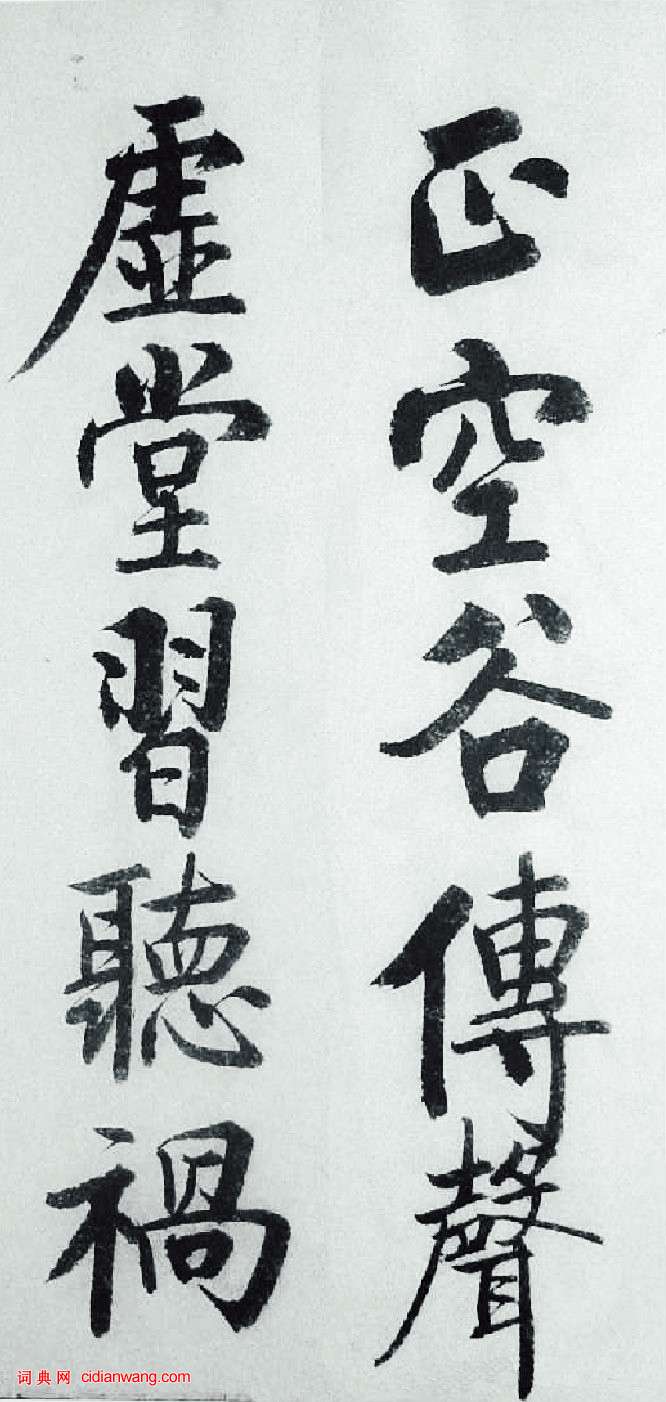 正空谷傳聲
虛堂習聽禍
词典网 cidianwang.com